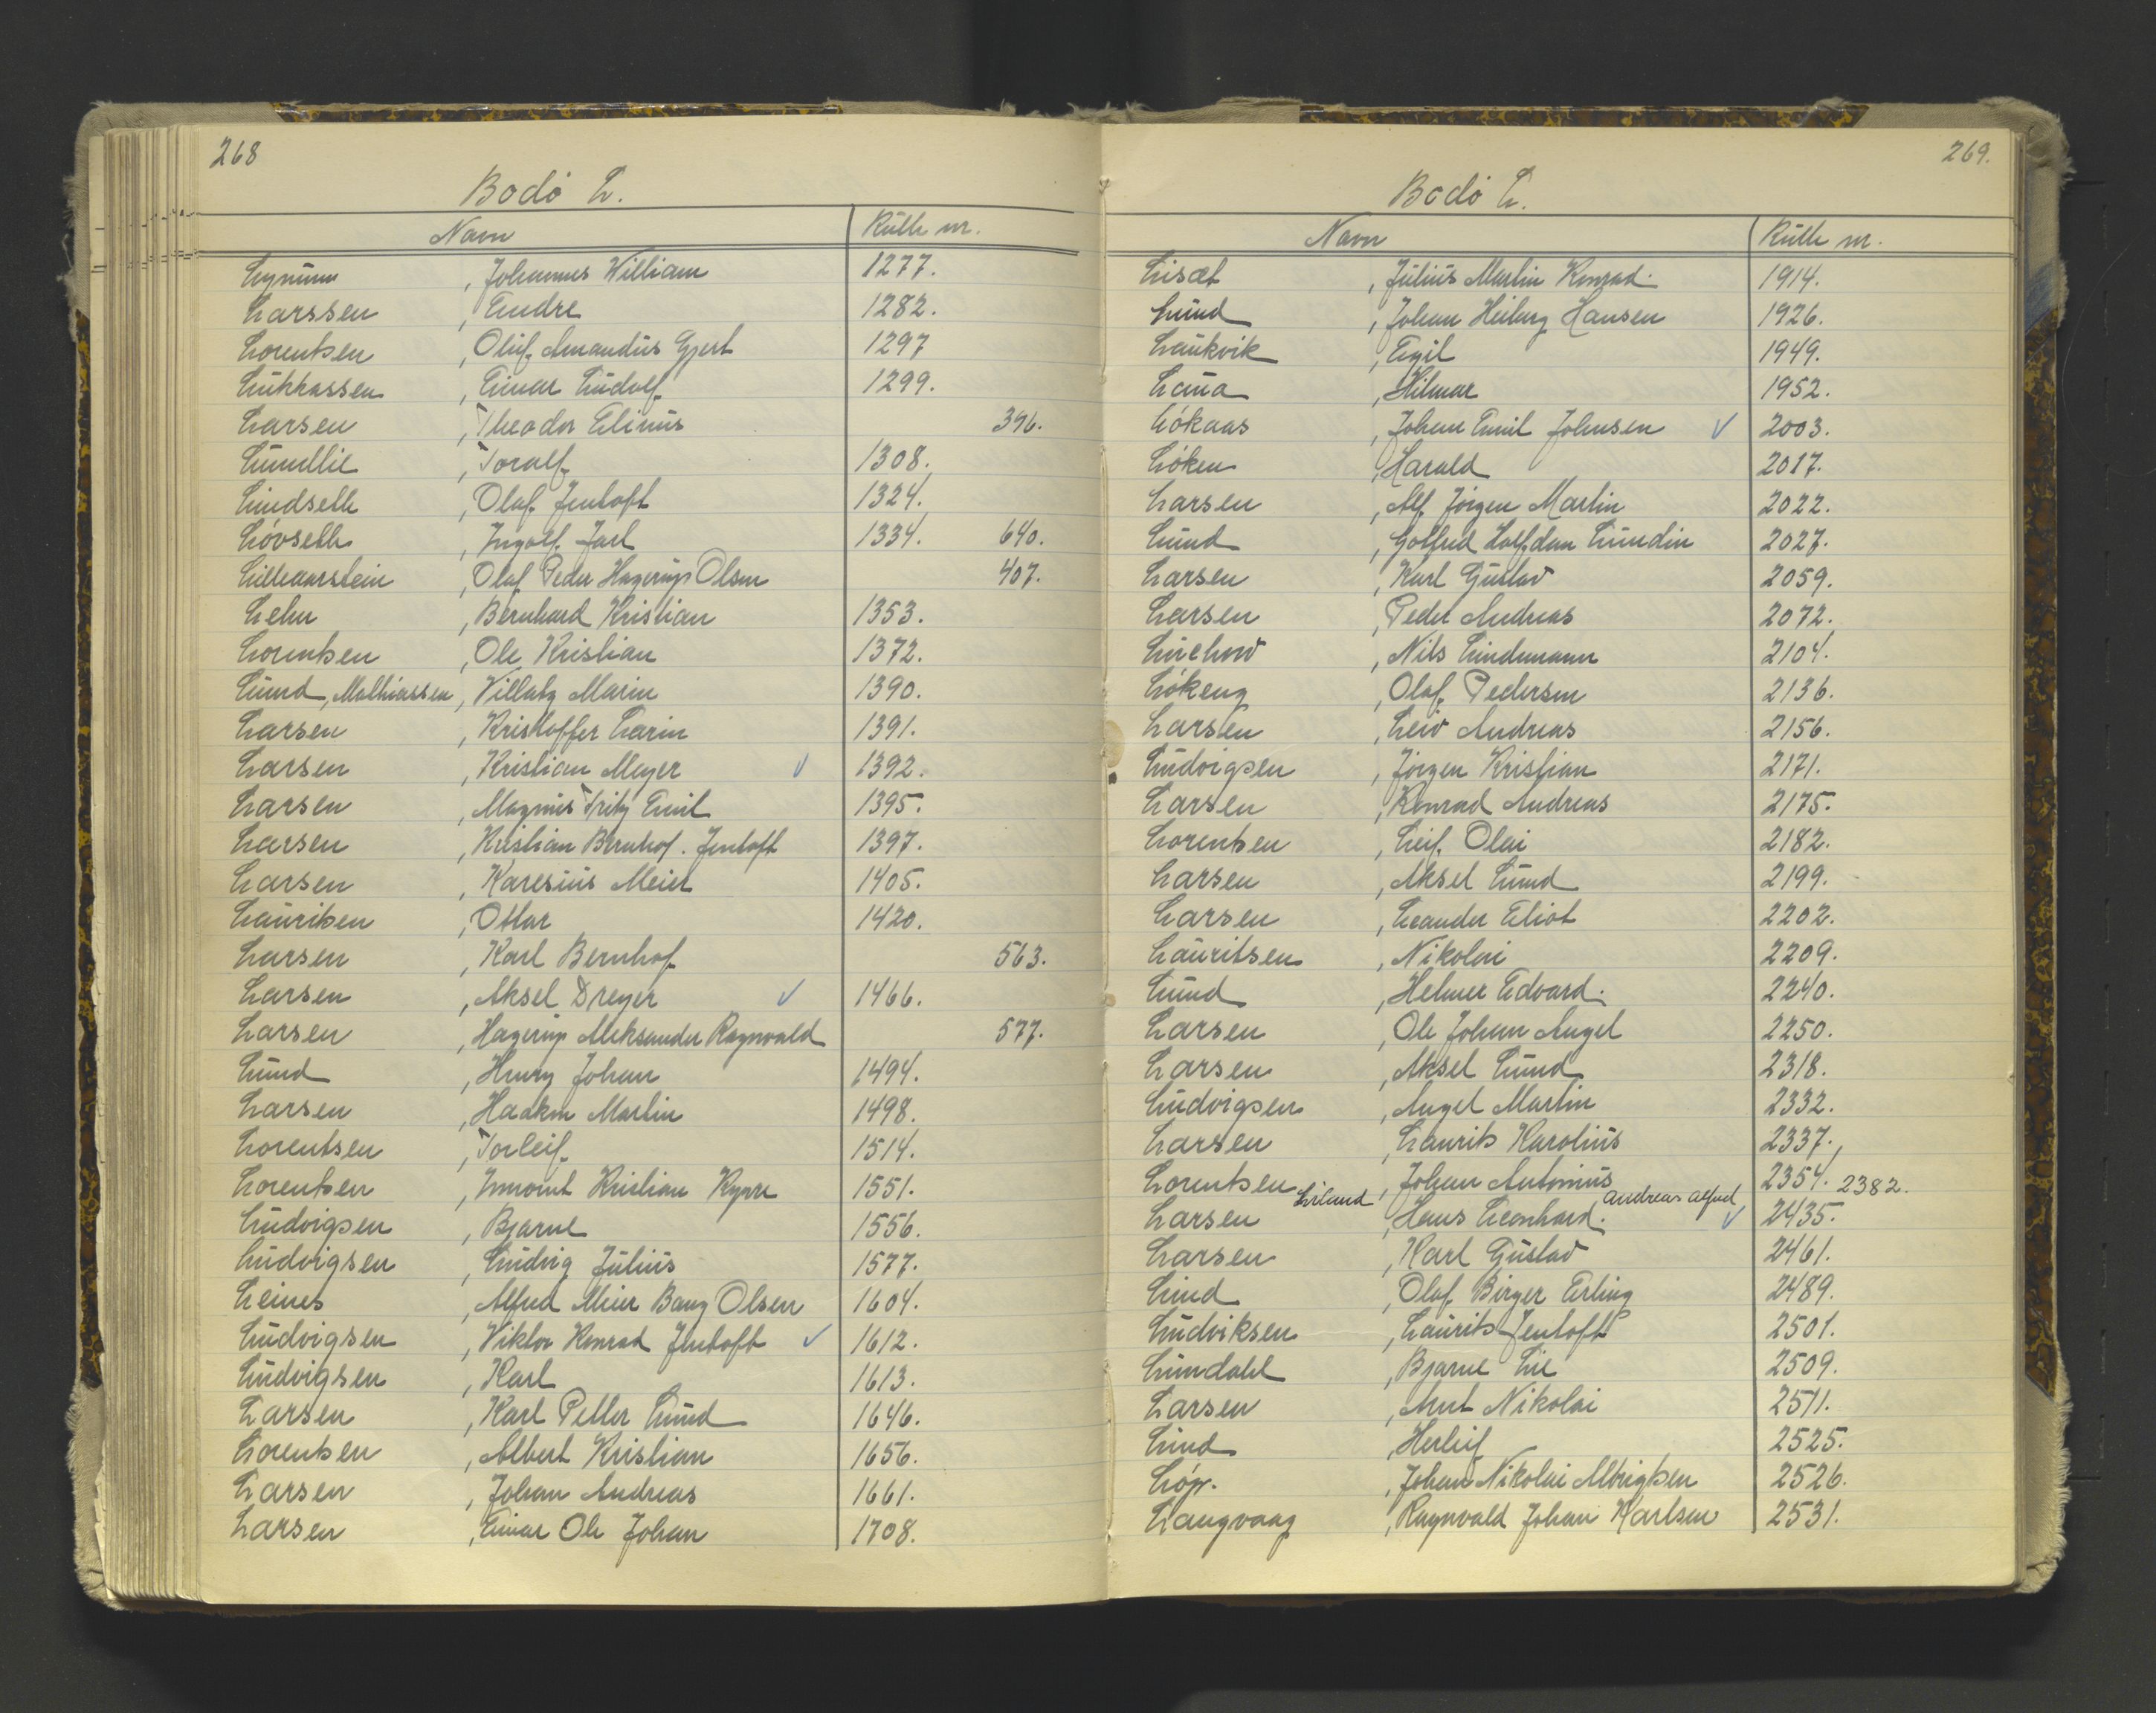 268
Bodö L.
Navn Rulle nr.
Lynum, Johannes William 1277.
Larssen, Endre 1282.
Lorentsen, Oluf Amandus Gjert 1297
Lukkassen, Einar Ludolf 1299.
Larsen, Theodor Elinus 396.
Lundlie, Toralf 1308.
Lindseth, Olaf Jentoft 1324.
Lövseth, Ingolf Jarl 1334. 640.
Lilleaarstein, Olaf Peder Hagerup Olsen 407.
Lehn, Bernhard Kristian 1353.
Lorentsen, Ole Kristian 1372.
Lund, Mathiassen, Villatz Marin 1390.
Larsen, Kristoffer Larin 1391.
Larsen, Kristian Meyer ✓ 1392.
Larsen, Magnus Fritz Emil 1395.
Larsen, Kristian Bernhof. Jentoft 1397.
Larsen, Karesius Meier 1405.
Lauritsen, Ottar 1420.
Larsen, Karl Bernhof 563.
Larsen, Aksel Dreyer ✓ 1466.
Larsen, Hagerup Aleksander Ragnvald 577.
Lund, Henry Johan 1494.
Larsen, Haakon Martin 1498.
Lorentsen, Torleif 1514.
Lorentsen, Kristian 1551.
Ludvigsen, Bjarne 1556.
Ludvigsen, Ludvig Julius 1577.
Leines, Alfred Meier Bang Olsen 1604.
Ludvigsen, Viktor Konrad Jentoft ✓ 1612.
Ludvigsen, Karl 1613.
Larsen, Karl Petter Lund 1646.
Lorentsen, Albert Kristian 1656.
Larsen, Johan Andreas 1661.
Larsen, Einar Ole Johan 1708.
269.
Bodö L.
Navn Rulle nr.
Lisæt, Julius Martin Konrad. 1914.
Lund, Johan Heiberg Hansen 1926.
Laukvik, Egil 1949.
Hilmar 1952.
Lökaas, Johan Emil Johnsen ✓ 2003.
Löken, Harald 2017.
Larsen, Alf Jörgen Martin 2022.
Lund, Gotfred Halfdan Lundin 2027.
Larsen, Karl Gustav 2059.
Larsen, Peder Andreas 2072.
Lüchow, Nils Lindemann 2104.
Lökeng, Olaf Pedersen 2136.
Larsen, Leiv Andreas 2156.
Ludvigsen, Jörgen Kristian 2171.
Larsen, Konrad Andreas 2175.
Lorentsen, Leif Olai 2182.
Larsen, Aksel Lund 2199.
Larsen, Leander Eliot 2202.
Lauritsen, Nikolai 2209.
Lund, Helmer Edvard. 2240.
Larsen, Ole Johan Angel 2250.
Larsen, Aksel Lund 2318.
Ludvigsen, Angel Martin 2332.
Larsen, Laurits Karolius 2337.
Lorentsen, Johan Antonius 2354. 2382.
Liland Andreas Alfred
Larsen, Hans Leonhard. ✓ 2435.
Larsen, Karl Gustav 2461.
Lind, Olaf Birger Erling 2489.
Ludviksen, Laurits Jentoft 2501.
Lundahl, Bjarne Lie 2509.
Larsen, Arnt Nikolai 2511.
Lind, Herleif 2525.
Löp., Johan Nikolai Albrigtsen 2526.
Langvaag, Ragnvald Johan Karlsen 2531.